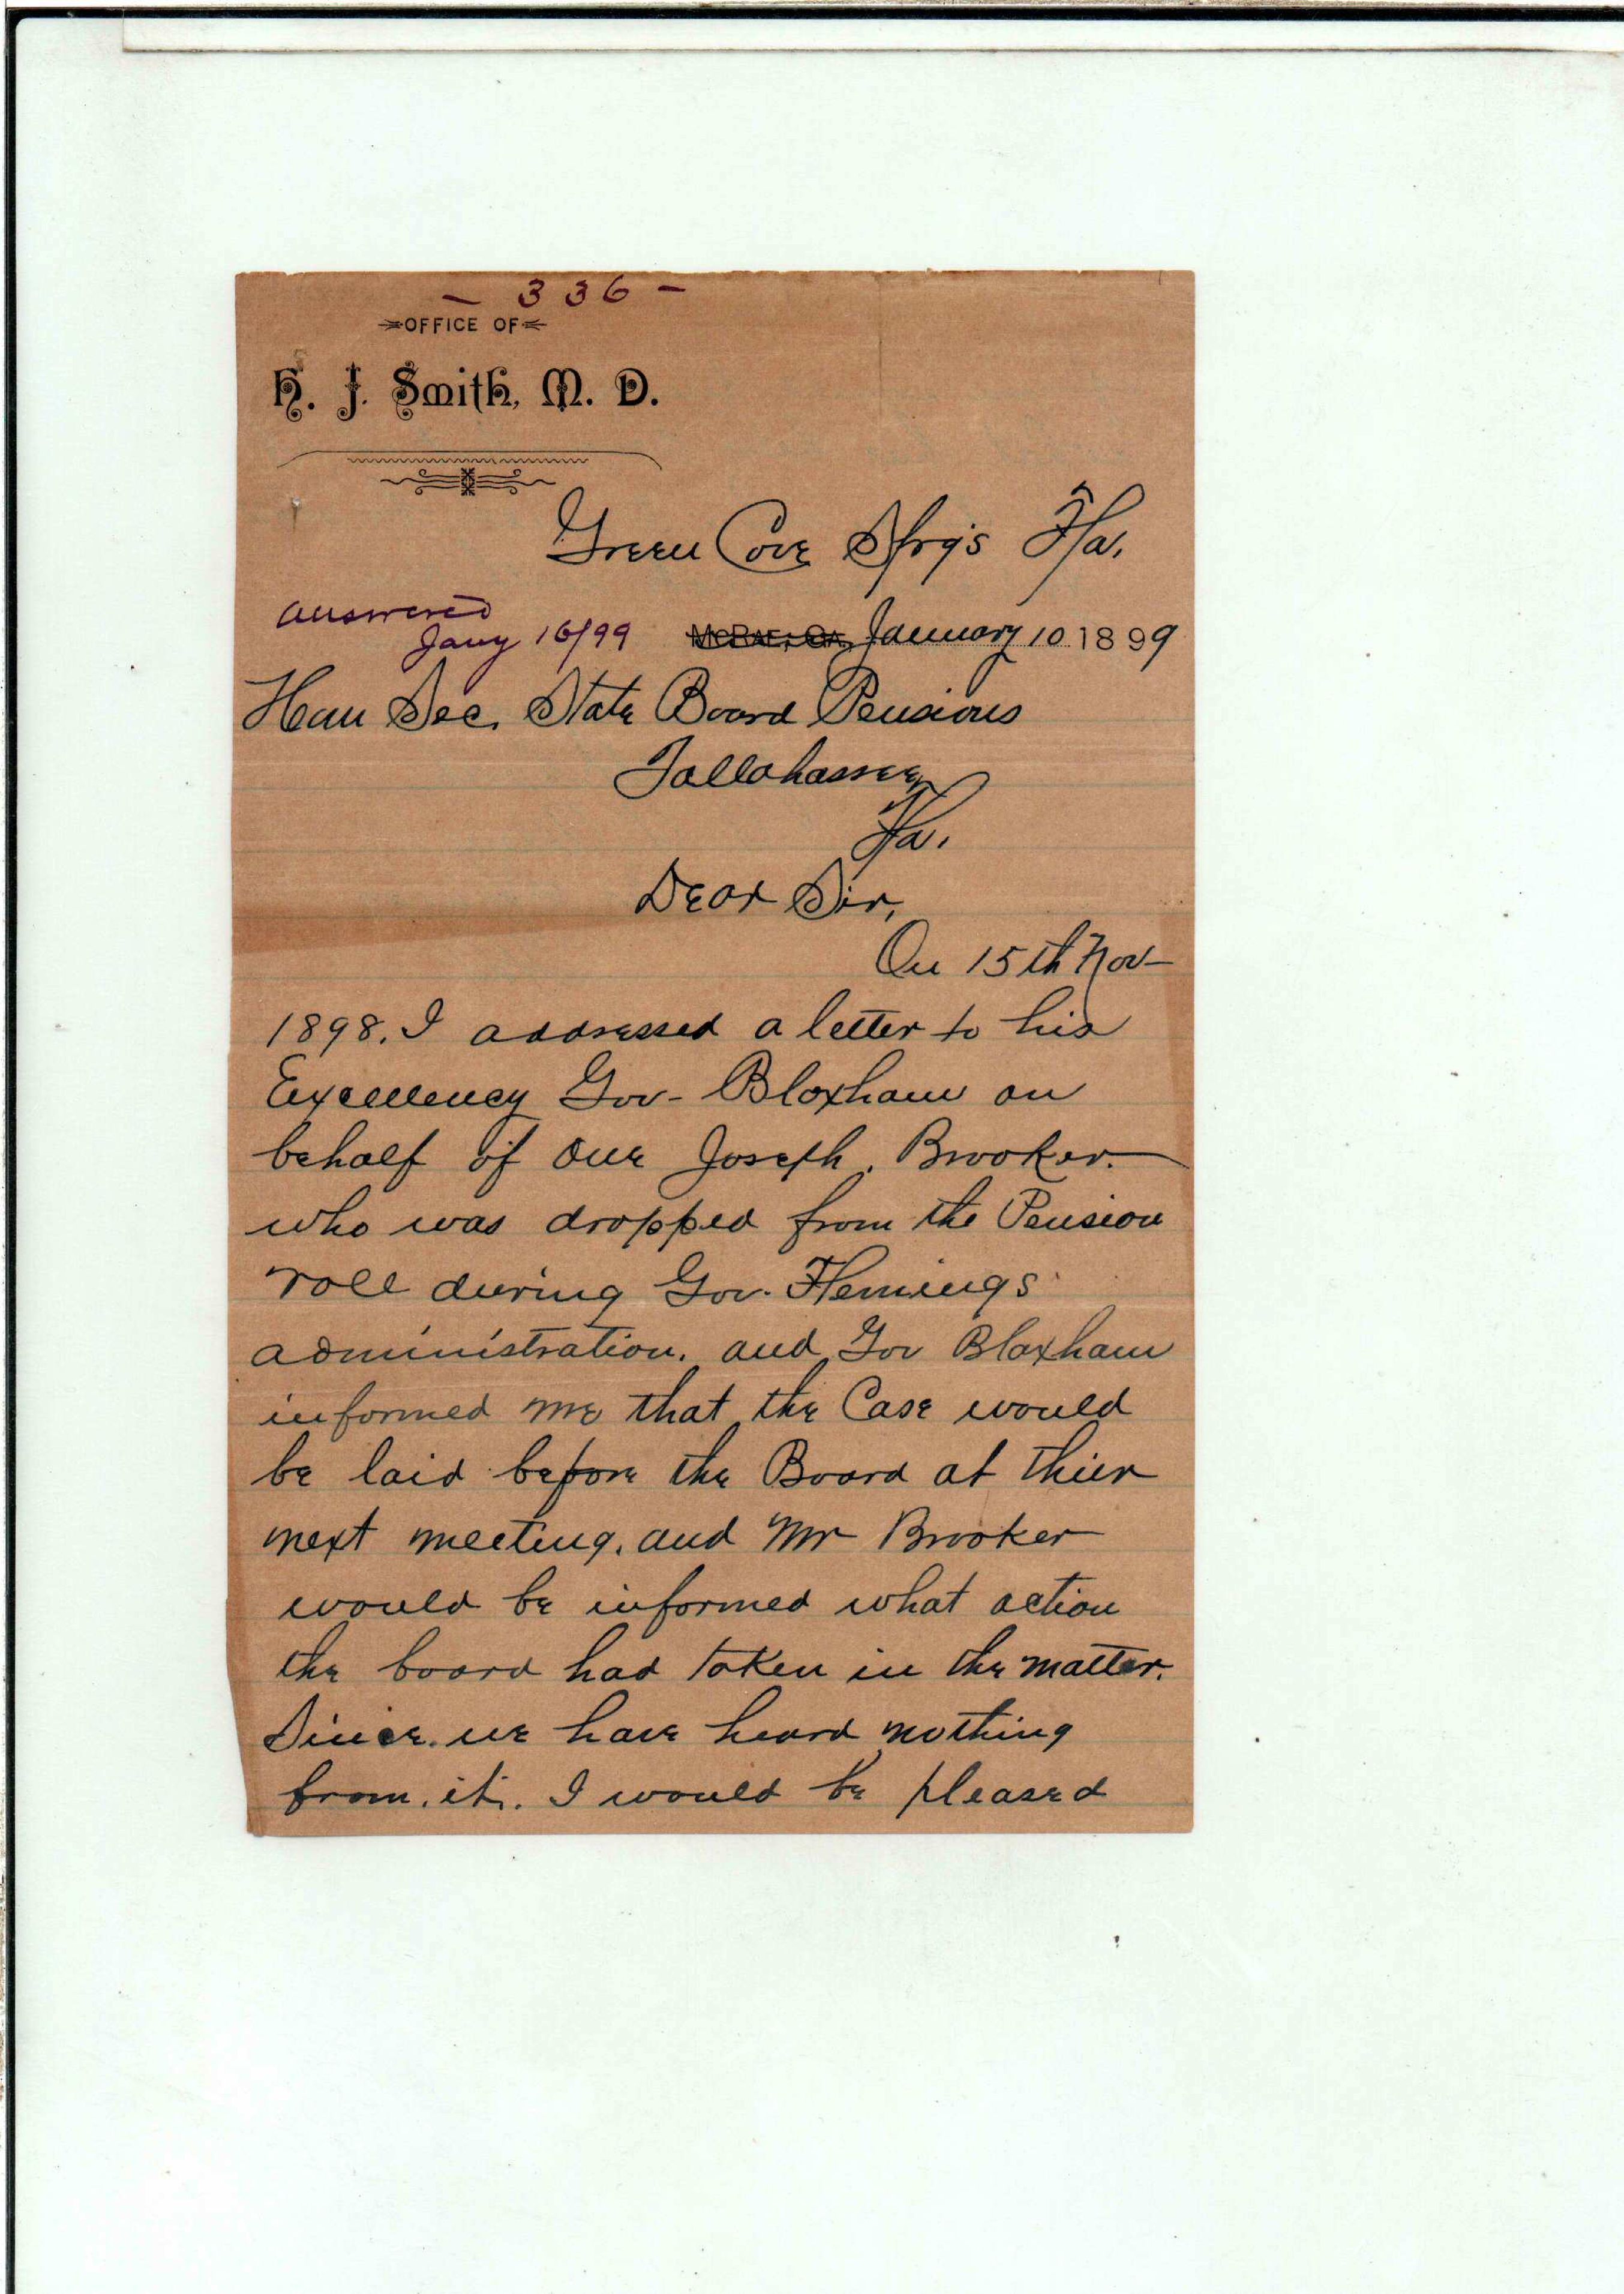 - 336 -
OFFICE OF
H. J. Smith, M. D.
Green Cove Sprg's Fla.
answered
Jany 16/99 McRAE, GA. January 10 1899
Hon Sec. State Board Pensions
Tallahassee,
Fla.
Dear Sir,
On 15th Nov-
1898. I addressed a letter to his
Excellency Gov- Bloxham on
behalf of one Joseph. Brooker.
who was dropped from the Pension
roll during Gov. Flemings
administration. and Gov Bloxham
informed me that the Case would
be laid before the Board at thier
next meeting. and Mr Brooker
would be informed what action
the board had taken in the matter.
Since. we have heard nothing
from. it. I would be pleased